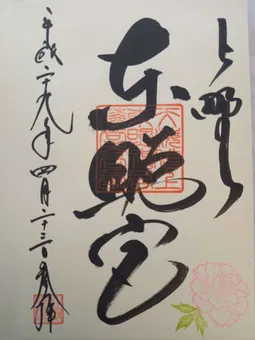 上野
東照宮
平成二十九年四月二十三日奉拝